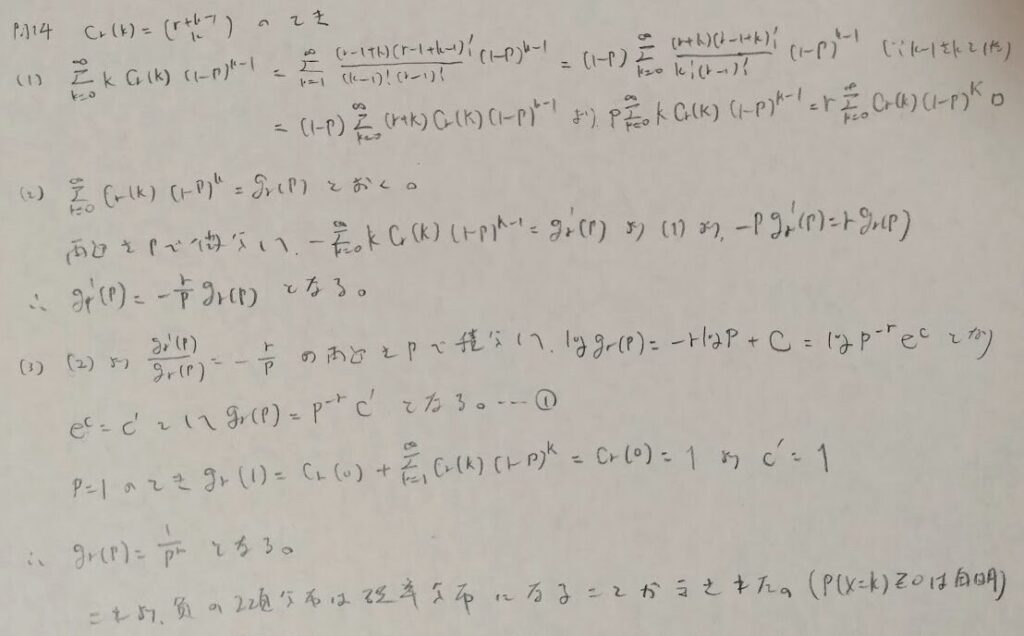 P.114 Cr(k) = (r+k-1 k) のとき
(1) Σ_{k=0}^{∞} k Cr(k) (1-P)^{k-1} = Σ_{k=1}^{∞} (r-1+k)(r-1+k-1)! / (k-1)!(r-1)! (1-P)^{k-1} = (1-P) Σ_{k=0}^{∞} (r+k)(r-1+k)! / k!(r-1)! (1-P)^{k-1} (∵ k-1をkと
= (1-P) Σ_{k=0}^{∞} (r+k) Cr(k) (1-P)^{k-1} より, P Σ_{k=0}^{∞} k Cr(k) (1-P)^{k-1} = r Σ_{k=0}^{∞} Cr(k) (1-P)^k □
(2) Σ_{k=0}^{∞} Cr(k) (1-P)^k = gr(P) とおく。
両辺をPで微分して, -Σ_{k=0}^{∞} k Cr(k) (1-P)^{k-1} = gr'(P) より (1) より, -P gr'(P) = r gr(P)
∴ gr'(P) = -r/P gr(P) となる。
(3) (2) より gr'(P)/gr(P) = -r/P の両辺をPで積分して, log gr(P) = -r log P + C = log P^{-r} e^C となり
e^C = C' として gr(P) = P^{-r} C' となる。…①
P=1 のとき gr(1) = Cr(0) + Σ_{k=1}^{∞} Cr(k) (1-P)^k = Cr(0) = 1 より C' = 1
∴ gr(P) = 1/P^r となる。
これより, 負の2項分布は確率分布になることが示された。(P(X=k)≧0は自明)